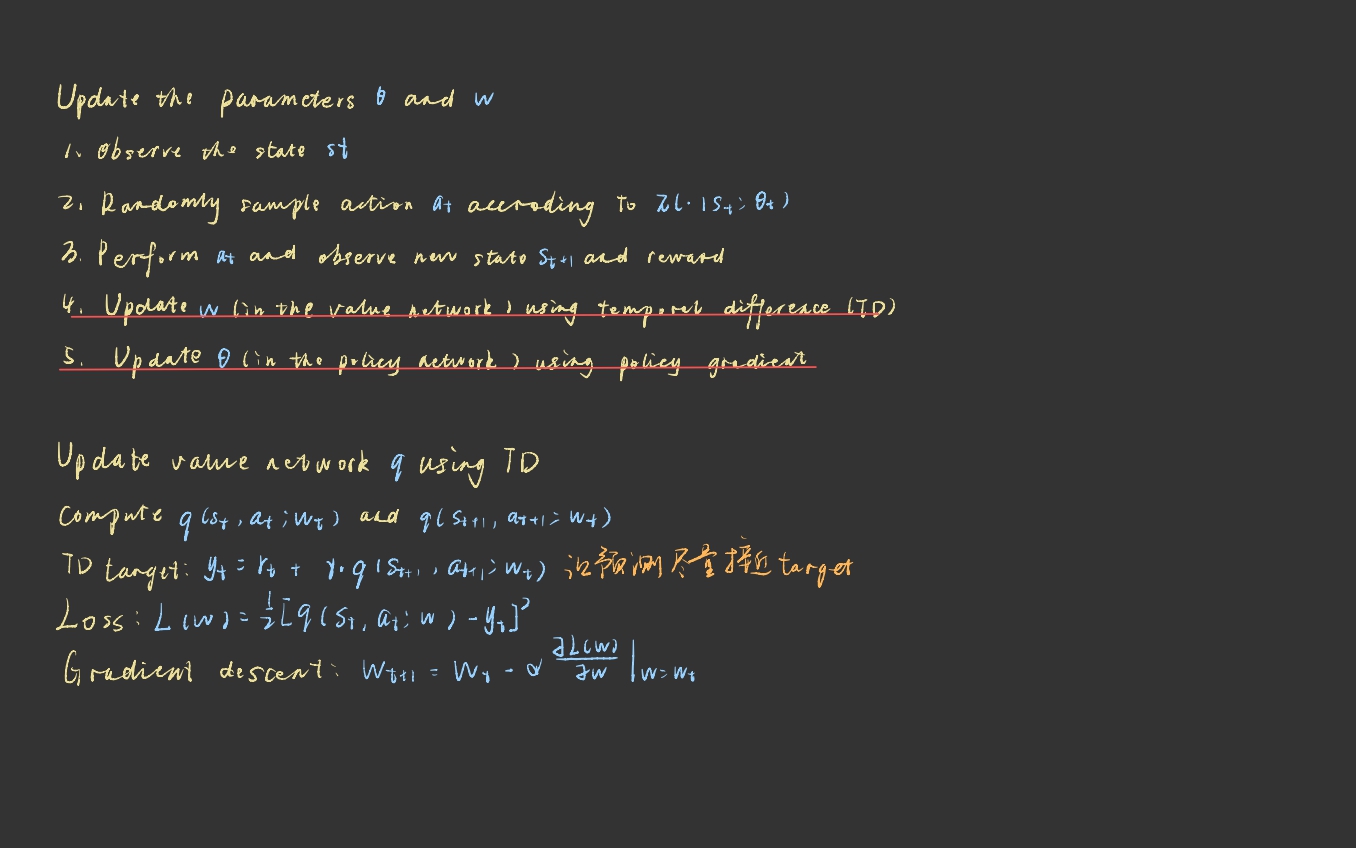 Update the parameters θ and w
1. Observe the state st
2. Randomly sample action at accroding to π(·|st; θt)
3. Perform at and observe new state st+1 and reward
4. Update w (in the value network) using temporal difference (TD)
5. Update θ (in the policy network) using policy gradient
Update value network q using TD
Compute q(st, at; wt) and q(st+1, at+1; wt)
TD target: yt = rt + γ·q(st+1, at+1; wt) 让预测尽量接近target
Loss: L(w) = 1/2[q(st, at; w) - yt]²
Gradient descent: wt+1 = wt - α ∂L(w)/∂w |w=wt